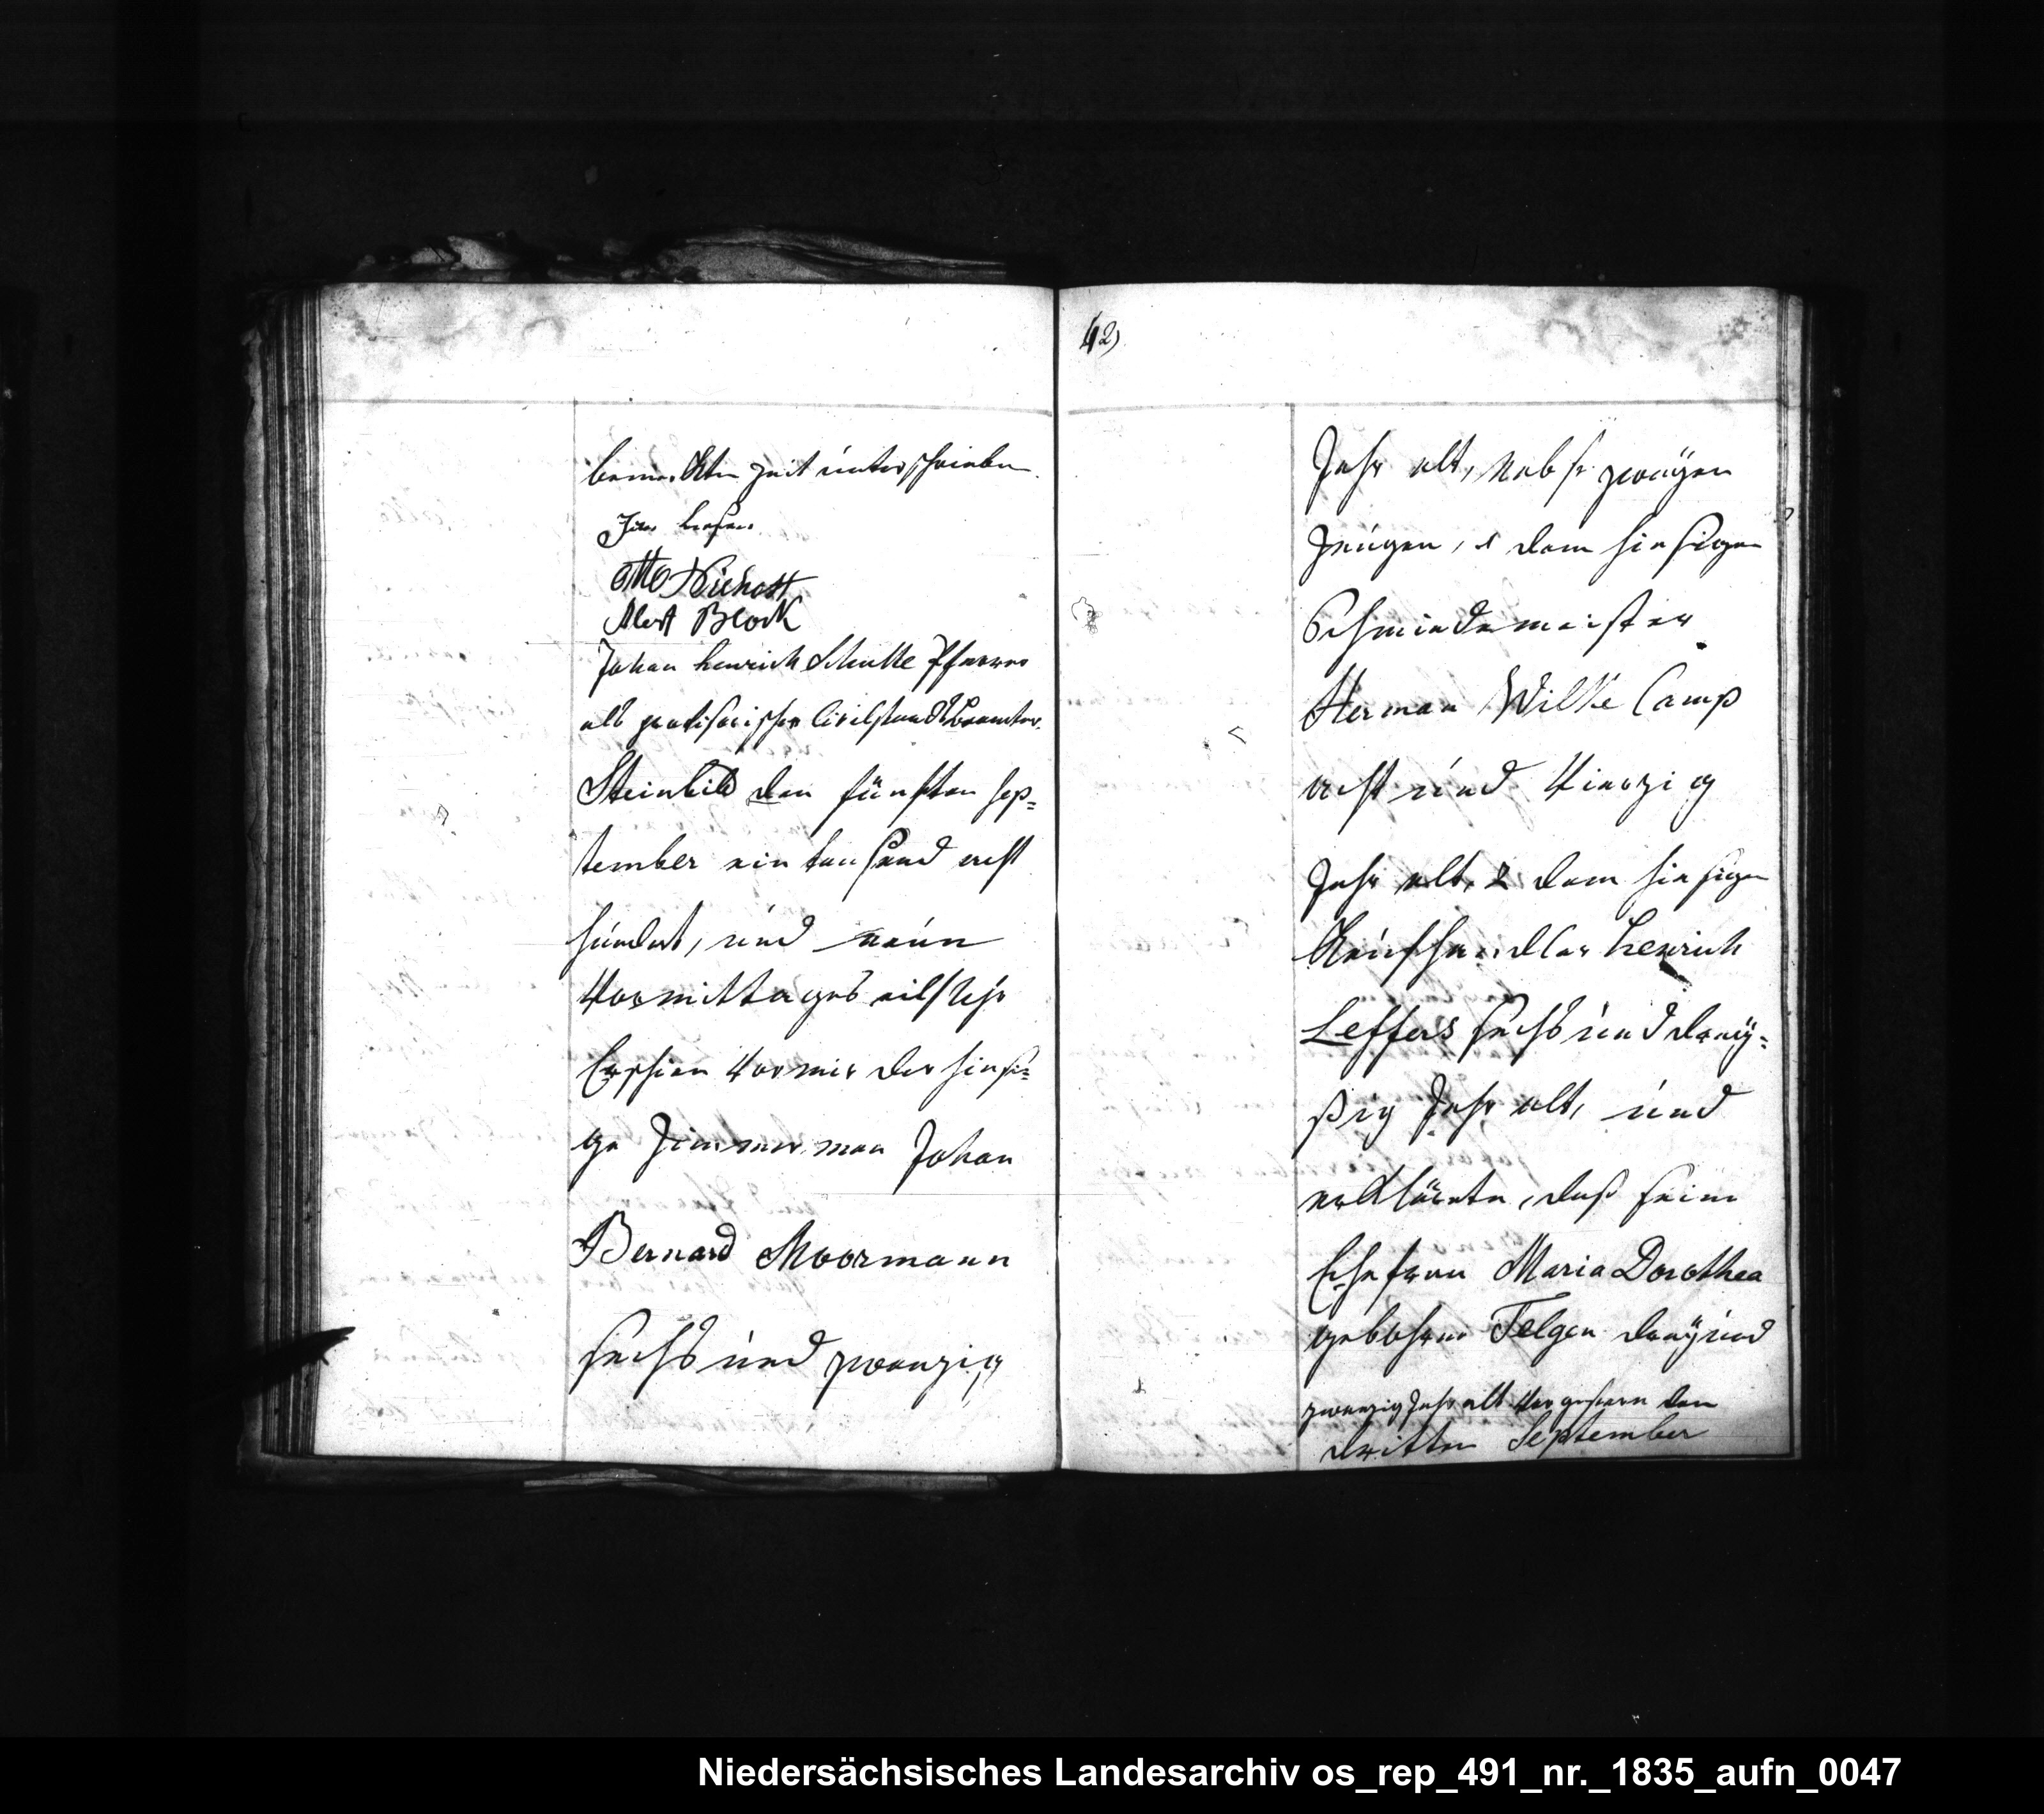 bemerkten Zeit unterschrieben.
Otto Niehoff
Alert Block
Johan henrich Schulte Pfarrer
als provisorischer Civilstandsbeamter.
Steinbild den fünften Sep=
tember ein tausend acht
hundert, und neun
Vormittages eilf Uhr
Erschien vor mir der hiesi=
ge Zimmerman Johan
Bernard Moormann
sechs und zwanzig
42)
Jahr alt, Nebst zweÿen
Zeugen, 1 dem hiesigen
Schmiedemeister
Herman Wilke Camp
acht und Vierzig
Jahr alt, 2 dem hiesigen
Kaufhandler henrich
Leffers sechs und dreÿ=
ßig Jahr alt, und
erklärete, daß seine
Ehefrau Maria Dorothea
gebohrne Telgen dreÿ und
zwanzig Jahr alt vorgestern den
dritten September
Niedersächsisches Landesarchiv os_rep_491_nr._1835_aufn_0047